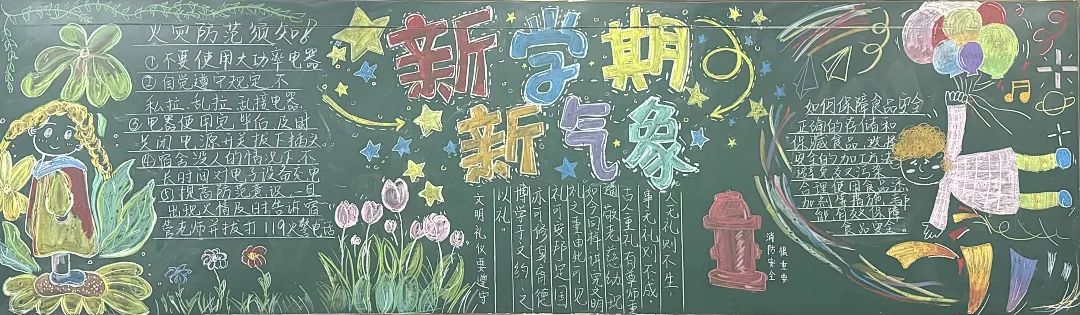 火灾防范须知!
①不要使用大功率电器
②自觉遵守规定不
私拉,乱拉,乱接电器
③电器使用完毕后及时
关闭电源开关拔下插头
④宿舍没人的情况下不
长时间对电子设备充电
⑤提高防范意识一旦
出现火情及时告诉宿
管老师并拨打119火警电话
新学期
新气象
人无礼则不生,
事无礼则不成
古人重礼有尊师重
敬老孩幼现
如今同样讲究文明
礼之重由此可见
礼可安邦定国
亦可修身育德
博学于文约之
以礼。
文明礼仪要遵守
消防安全
很重要
如何保障食品安全
正确的存储和
保藏食品
安全的加工方法
避免交叉污染
合理使用食品添
加剂等措施都
能有效保障
食品安全。